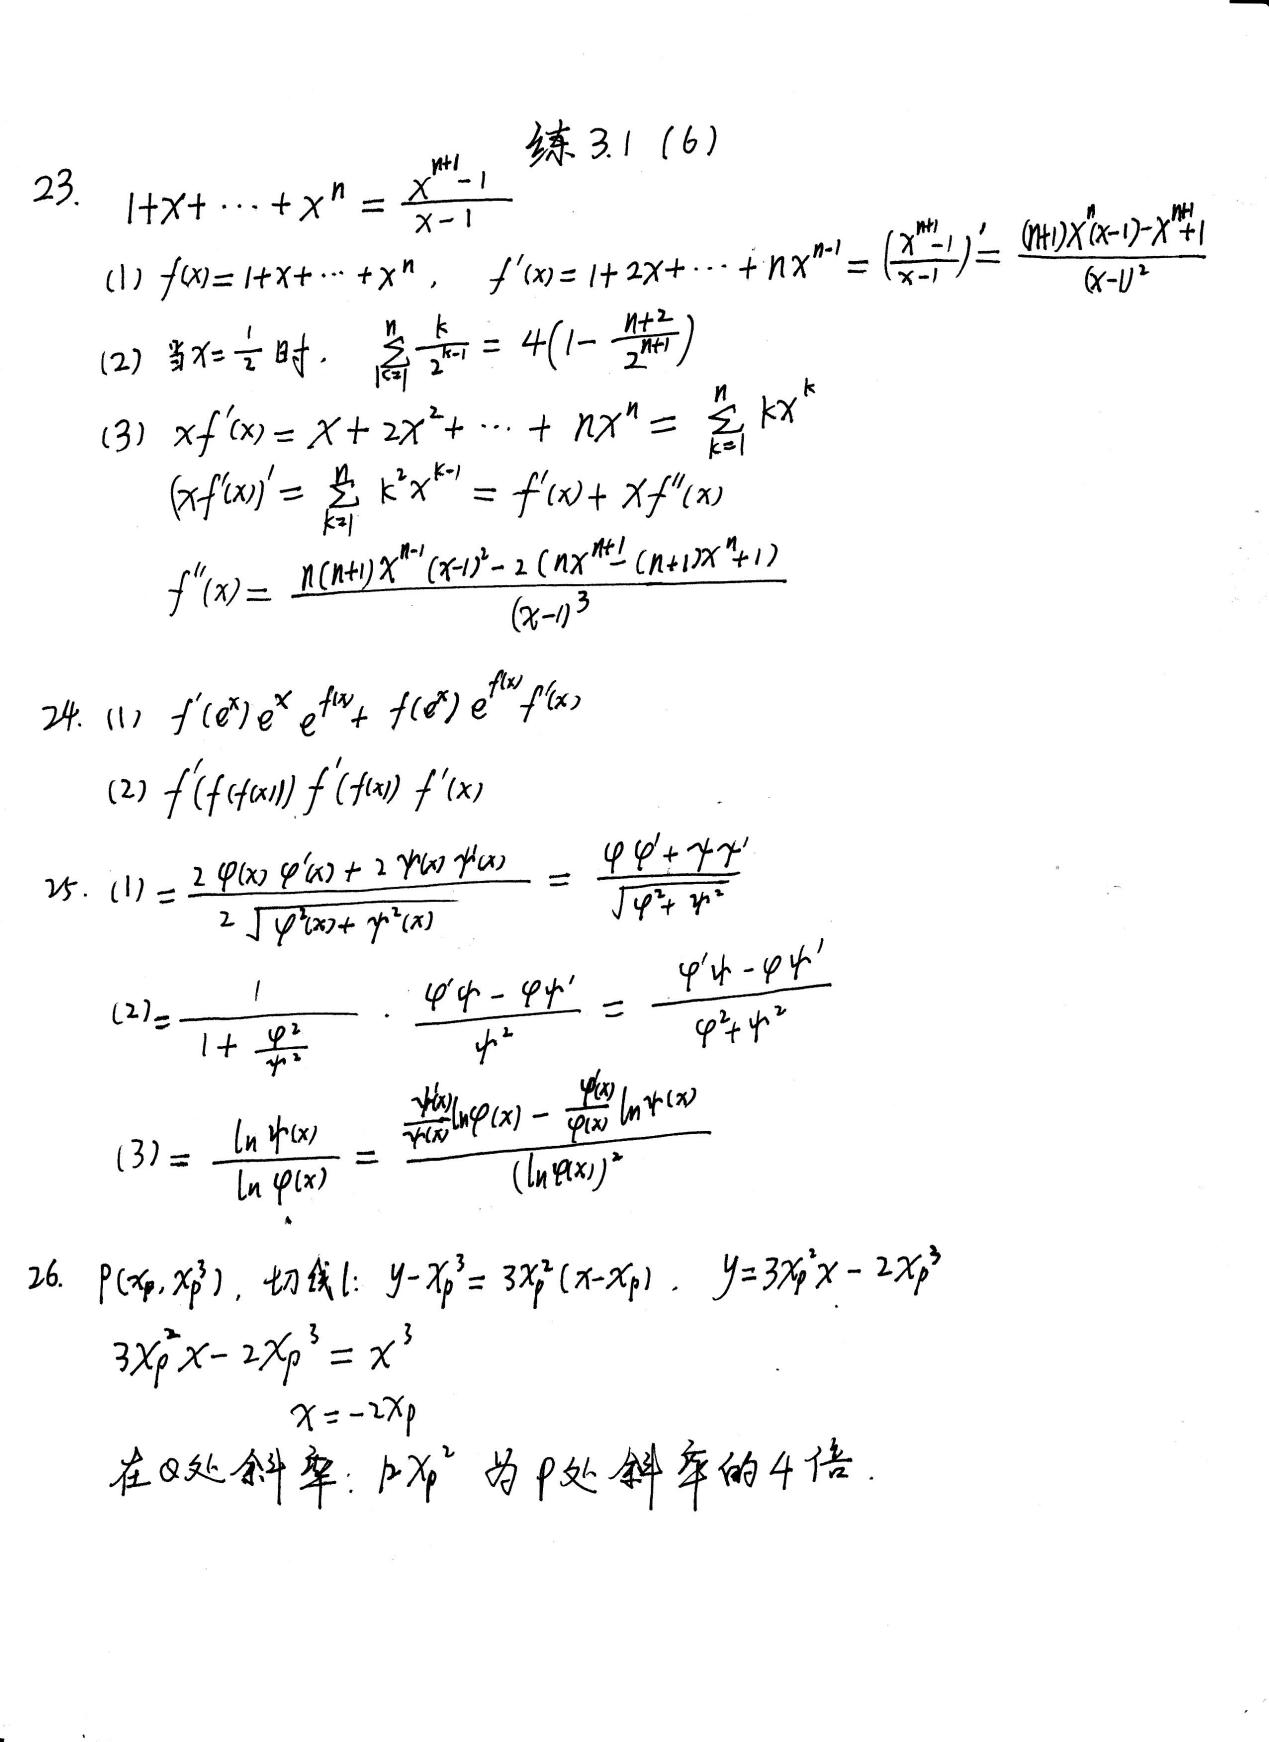 练3.1 (6)
23. 1+x+⋯+xⁿ = (xⁿ⁺¹-1)/(x-1)
(1) f(x)=1+x+⋯+xⁿ, f'(x)=1+2x+⋯+nxⁿ⁻¹=((xⁿ⁺¹-1)/(x-1))'=((n+1)xⁿ(x-1)-xⁿ⁺¹+1)/(x-1)²
(2) 当x=1/2时. ∑_{k=1}^{n} k/2^{k-1} = 4(1-(n+2)/2^{n+1})
(3) xf'(x)=x+2x²+⋯+nxⁿ=∑_{k=1}^{n} kx^k
(xf'(x))'=∑_{k=1}^{n} k²x^{k-1}=f'(x)+xf''(x)
f''(x)=(n(n+1)xⁿ⁻¹(x-1)²-2(nxⁿ⁺¹-(n+1)xⁿ+1))/(x-1)³
24. (1) f'(e^x)e^x e^{f(x)}+f(e^x)e^{f(x)}f'(x)
(2) f'(f(f(x)))f'(f(x))f'(x)
25. (1)=(2φ(x)φ'(x)+2ψ(x)ψ'(x))/(2√(φ²(x)+ψ²(x)))=(φφ'+ψψ')/√(φ²+ψ²)
(2)=1/(1+φ²/ψ²)·(φ'ψ-φψ')/ψ²=(φ'ψ-φψ')/(φ²+ψ²)
(3)=lnψ(x)/lnφ(x)=(ψ'(x)/ψ(x) lnφ(x)-φ'(x)/φ(x) lnψ(x))/(lnφ(x))²
26. P(x_p, x_p³), 切线l: y-x_p³=3x_p²(x-x_p). y=3x_p²x-2x_p³
3x_p²x-2x_p³=x³
x=-2x_p
在Q处斜率: 12x_p² 为P处斜率的4倍.